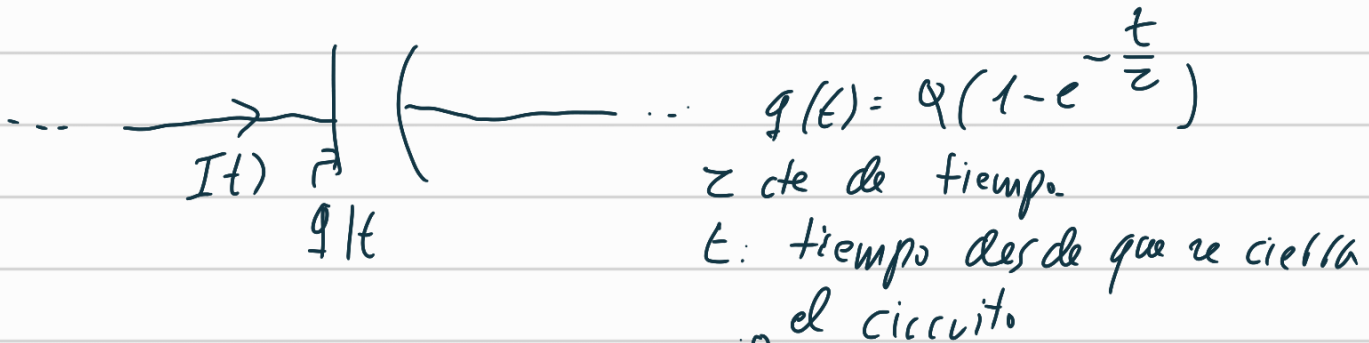 I(t)
q(t
q(t) = Q(1-e^{-t/τ})
τ cte de tiempo.
t: tiempo desde que se cierra
el circuito